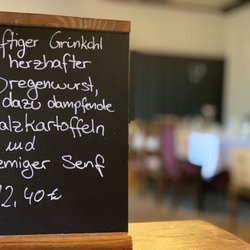 ftiger Grünkohl
herzhafter
Bregenwurst,
dazu dampfende
alzkartoffeln
und
emiger Senf
12,40€